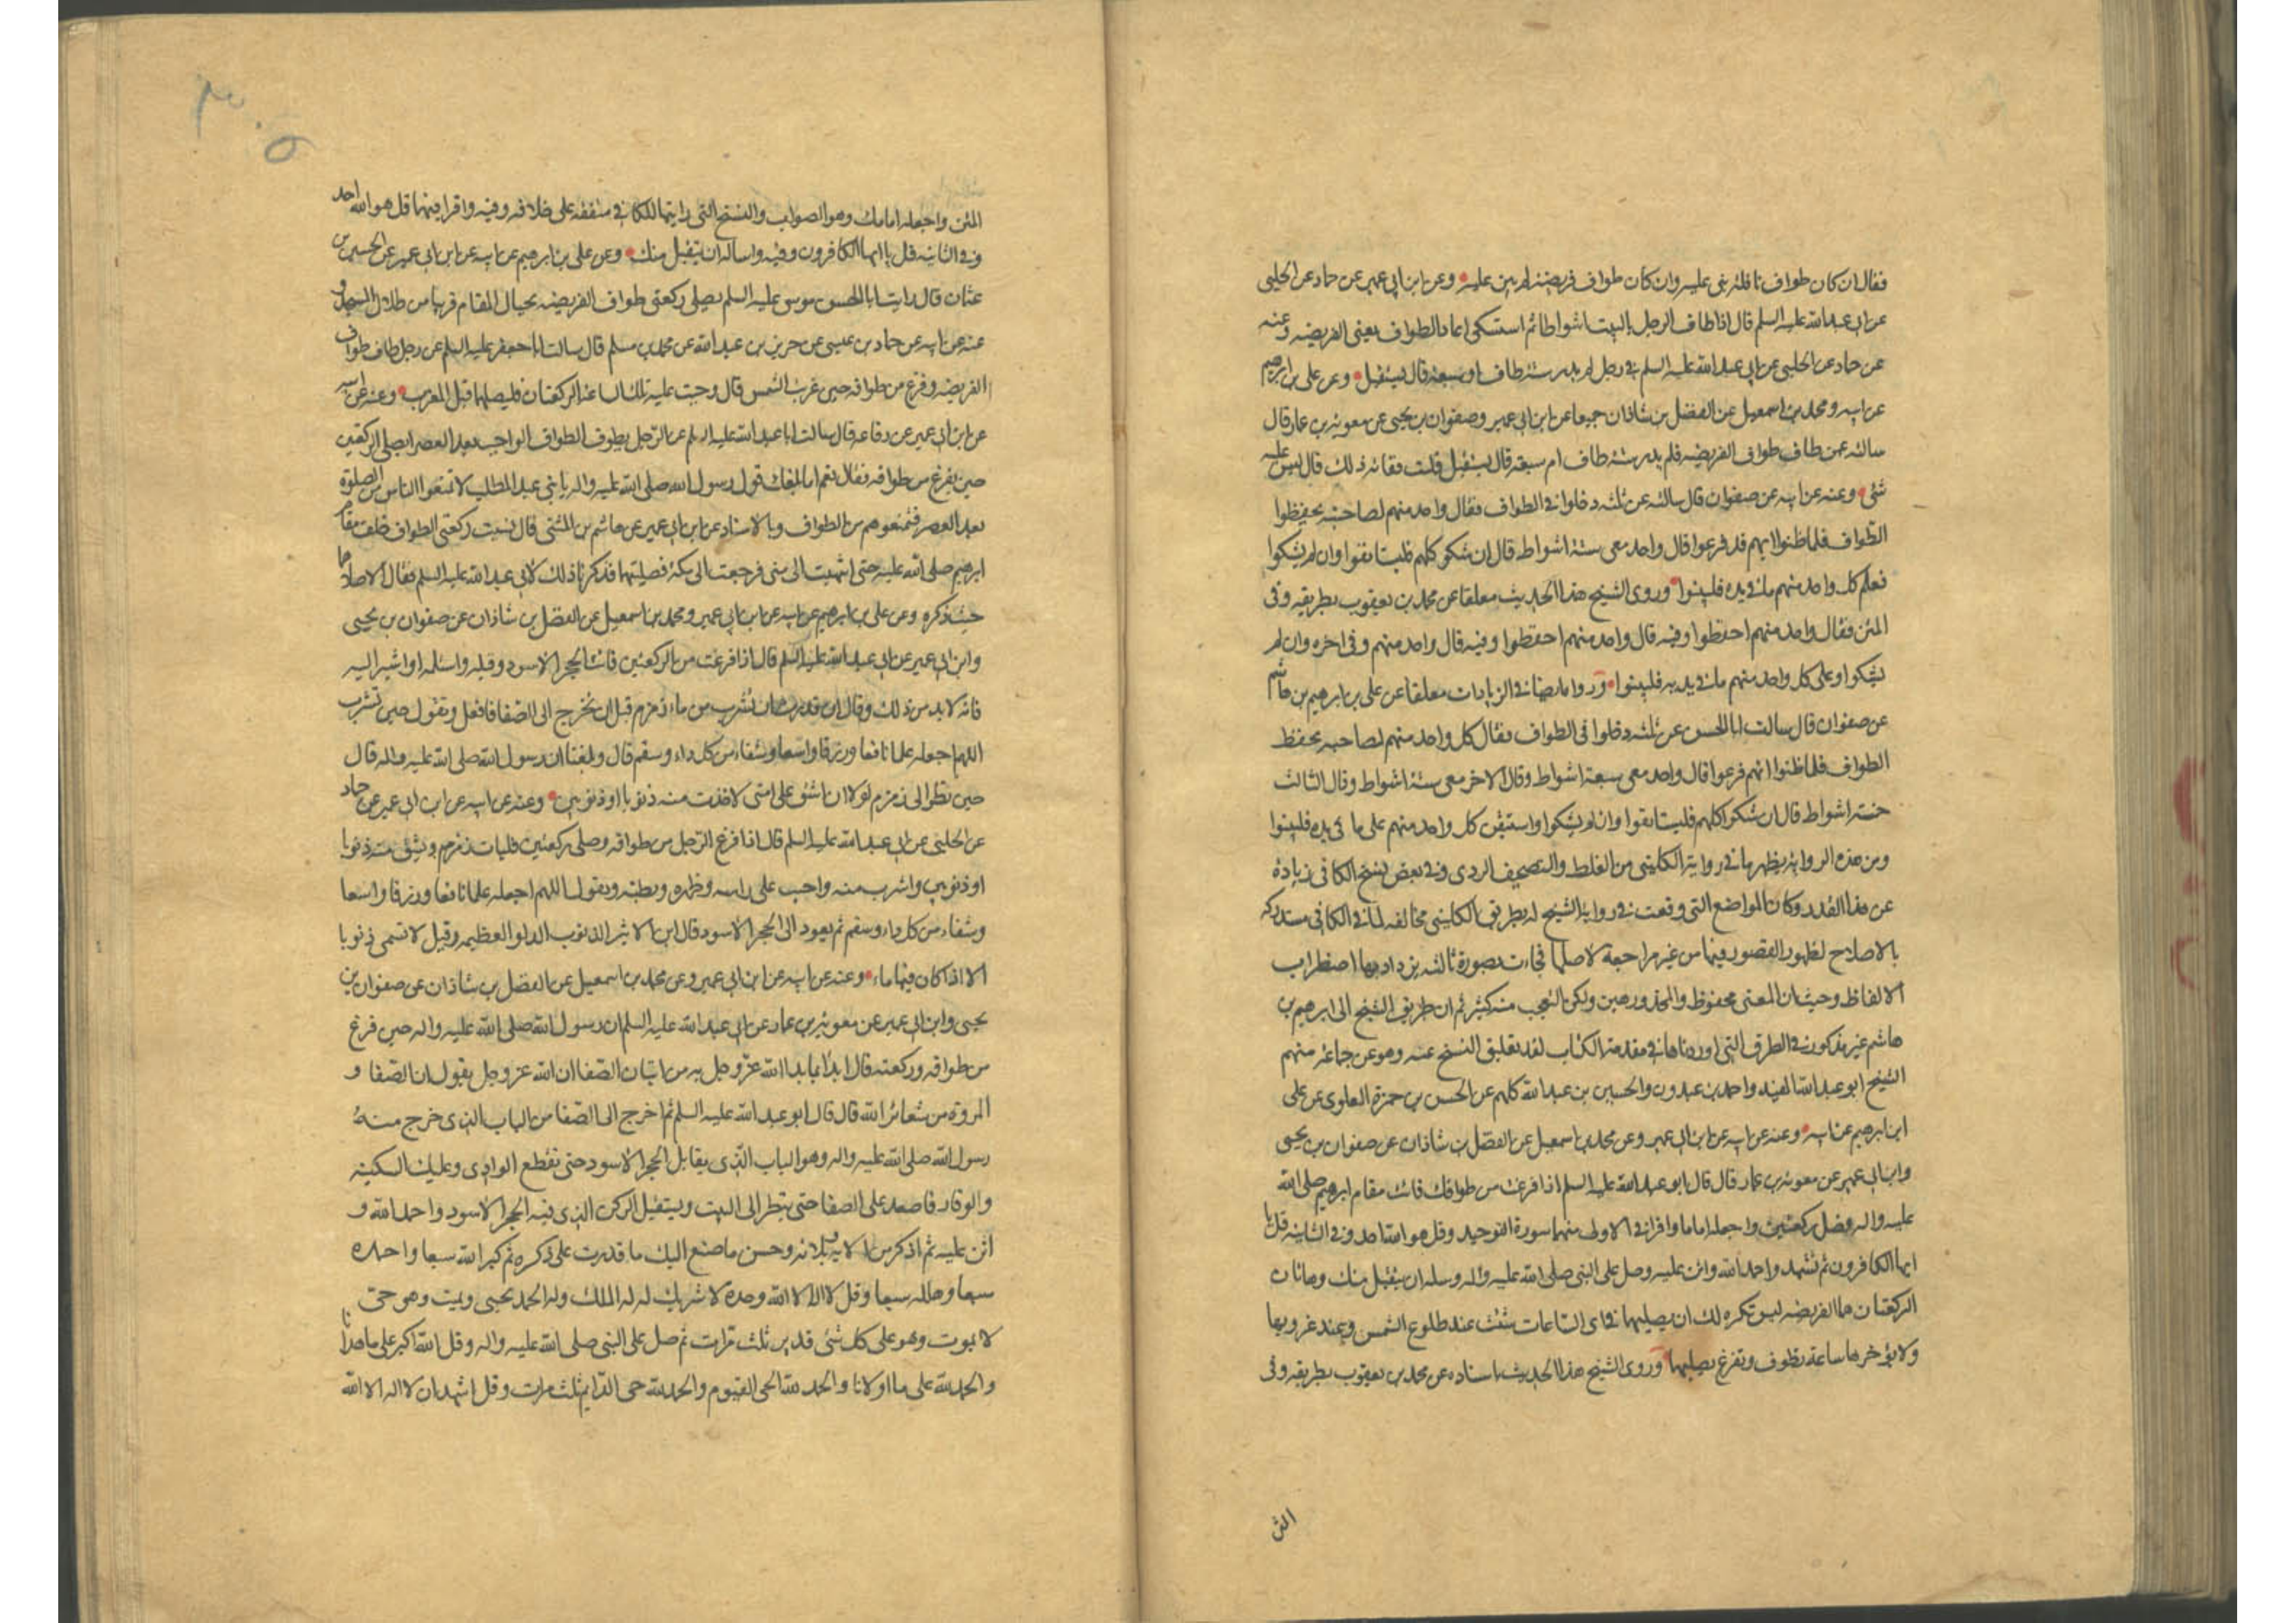 فقال ان كان طواف نافلة بنى عليه وان كان طواف فريضة لم يبن عليه وعن ابن ابي عمير عن حماد عن الحلبي
عن ابي عبد الله عليه السلم قال اذا طاف الرجل بالبيت اشواطا ثم اشتكى اعاد الطواف يعنى الفريضه وعنه
عن حماد عن الحلبي عن ابي عبد الله عليه السلم في رجل لم يدر ستة طاف او سبعة قال يستقبل وعن علي بن ابرهيم
عن ابيه ومحمد بن اسمعيل عن الفضل بن شاذان جميعا عن ابن ابي عمير وصفوان بن يحيى عن معوية بن عمار قال
سالته عمن طاف طواف الفريضه فلم يدر ستة طاف ام سبعة قال يستقبل قلت ففاته ذلك قال ليس عليه
شئ وعنه عن ابيه عن صفوان قال سالته عن ثلثة دخلوا في الطواف فقال واحد منهم لصاحبه تحفظوا
الطواف فلما ظنوا انهم قد فرغوا قال واحد معى ستة اشواط قال ان شكوا كلهم فليستانفوا وان لم يشكوا
فعلم كل واحد منهم ما في يده فليبنوا وروى الشيخ هذا الحديث معلقا عن محمد بن يعقوب بطريقه وفى
المتن فقال واحد منهم احفظوا وفيه قال واحد منهم احفظوا وفيه قال واحد منهم وفى اخره وان لم
يشكوا وعلى كل واحد منهم ما في يديه فليبنوا ورواه ايضا في الزيادات معلقا عن علي بن ابرهيم بن هاشم
عن صفوان قال سالت ابا الحسن عن ثلثة دخلوا في الطواف فقال كل واحد منهم لصاحبه تحفظ
الطواف فلما ظنوا انهم فرغوا قال واحد معى سبعة اشواط وقال الاخر معى ستة اشواط وقال الثالث
خمسة اشواط قال ان شكوا كلهم فليستانفوا وان لم يشكوا واستيقن كل واحد منهم على ما في يده فليبنوا
ومن هذه الرواية يظهر ما في رواية الكليني من الغلط والتصحيف الردى وفي بعض نسخ الكافى زيادة
عن هذا القدر وكان المواضع التي وقعت في رواية الشيخ له بطريق الكليني مخالفه لما في الكافى مستدركه
بالاصلاح لظهور القصور فيها من غير مراجعة لاصلها فجاءت بصورة ثالثه يزداد بها اضطراب
الالفاظ وحيث ان المعنى محفوظ والمحذور هين ولكن التعجب منه كثير ثم ان طريق الشيخ الى ابرهيم بن
هاشم غير مذكور في الطرق التي اوردناها في مقدمة الكتاب لفقد تعليق الشيخ عنه وهو عن جماعة منهم
الشيخ ابو عبد الله المفيد واحمد بن عبدون والحسين بن عبد الله كلهم عن الحسن بن حمزة العلوى عن على
ابن ابرهيم عن ابيه وعنه عن ابيه عن ابن ابي عمير وعن محمد بن اسمعيل عن الفضل بن شاذان عن صفوان بن يحيى
وابن ابي عمير عن معوية بن عمار قال قال ابو عبد الله عليه السلم اذا فرغت من طوافك فائت مقام ابرهيم صلى الله
عليه واله فصل ركعتين واجعله اماما واقرا في الاولى منهما سورة التوحيد وقل هو الله احد وفي الثانية قل يا
ايها الكافرون ثم تشهد واحمد الله واثن عليه وصل على النبي صلى الله عليه واله وسله ان يتقبل منك وهاتان
الركعتان هما الفريضه ليس تكره لك ان تصليهما في اى الساعات شئت عند طلوع الشمس وعند غروبها
ولا تؤخرها ساعة تطوف وتفرغ تصليهما وروى الشيخ هذا الحديث باسناده عن محمد بن يعقوب بطريقه وفى
المتن
٣٠٥
المتن واجعله امامك وهو الصواب والنسخ التي رايتها للكافى متفقه على خلافه وفيه واقرا فيهما قل هو الله احد
وفي الثانية قل يا ايها الكافرون وفيه واساله ان يتقبل منك وعن علي بن ابرهيم عن ابيه عن ابن ابي عمير عن الحسين بن
عثمان قال رايت ابا الحسن موسى عليه السلم يصلى ركعتى طواف الفريضه بحيال المقام قريبا من ظلال المسجد و
عنه عن ابيه عن حماد بن عيسى عن حريز بن عبد الله عن محمد بن مسلم قال سالت ابا جعفر عليه السلم عن رجل طاف طواف
الفريضه وفرغ من طوافه حين غربت الشمس قال وجبت عليه تلك الساعة الركعتان فليصلهما قبل المغرب وعنه عن ابيه
عن ابن ابي عمير عن رفاعه قال سالت ابا عبد الله عليه السلم عن الرجل يطوف الطواف الواجب بعد العصر ايصلى الركعتين
حين يفرغ من طوافه فقال نعم اما بلغك قول رسول الله صلى الله عليه واله يا بنى عبد المطلب لا تمنعوا الناس من الصلوة
بعد العصر فتمنعوهم من الطواف وبالاسناد عن ابن ابي عمير عن هاشم بن المثنى قال نسيت ركعتى الطواف خلف مقام
ابرهيم صلى الله عليه حتى انتهيت الى منى فرجعت الى مكة فصليتهما فذكرنا ذلك لابي عبد الله عليه السلم فقال الا صلاهما
حيث ذكره وعن علي بن ابرهيم عن ابيه عن ابن ابي عمير ومحمد بن اسمعيل عن الفضل بن شاذان عن صفوان بن يحيى
وابن ابي عمير عن ابي عبد الله عليه السلم قال اذا فرغت من الركعتين فائت الحجر الاسود وقبله واستلمه او اشر اليه
فانه لا بد من ذلك وقال ان قدرت ان تشرب من ماء زمزم قبل ان تخرج الى الصفا فافعل وتقول حين تشرب
اللهم اجعله علما نافعا ورزقا واسعا وشفاء من كل داء وسقم قال وبلغنا ان رسول الله صلى الله عليه واله قال
حين نظر الى زمزم لولا ان اشق على امتى لاخذت منه ذنوبا او ذنوبين وعنه عن ابيه عن ابن ابي عمير عن حماد
عن الحلبي عن ابي عبد الله عليه السلم قال اذا فرغ الرجل من طوافه وصلى ركعتين فليات زمزم ويستق منه ذنوبا
او ذنوبين واشرب منه واصب على راسه وظهره وبطنه ويقول اللهم اجعله علما نافعا ورزقا واسعا
وشفاء من كل داء وسقم ثم يعود الى الحجر الاسود قال ابن الاثير الذنوب الدلو العظيمه وقيل لا تسمى ذنوبا
الا اذا كان فيها ماء وعنه عن ابيه عن ابن ابي عمير وعن محمد بن اسمعيل عن الفضل بن شاذان عن صفوان بن
يحيى وابن ابي عمير عن معوية بن عمار عن ابي عبد الله عليه السلم ان رسول الله صلى الله عليه واله حين فرغ
من طوافه وركعتيه قال ابدأ بما بدا الله عز وجل به من اتيان الصفا ان الله عز وجل يقول ان الصفا و
المروة من شعائر الله قال قال ابو عبد الله عليه السلم ثم اخرج الى الصفا من الباب الذى خرج منه
رسول الله صلى الله عليه واله وهو الباب الذى يقابل الحجر الاسود حتى تقطع الوادى وعليك السكينه
والوقار فاصعد على الصفا حتى تنظر الى البيت ويستقبل الركن الذى فيه الحجر الاسود واحمد الله و
اثن عليه ثم اذكر من الايه وبلائه وحسن ما صنع اليك ما قدرت على ذكره ثم كبر الله سبعا واحمده
سبعا وهلله سبعا وقل لا اله الا الله وحده لا شريك له له الملك وله الحمد يحيى ويميت وهو حى
لا يموت وهو على كل شئ قدير ثلث مرات ثم صل على النبي صلى الله عليه واله وقل الله اكبر على ما هدانا
والحمد لله على ما اولانا والحمد لله الحى القيوم والحمد لله حى الدايم ثلث مرات وقل اشهد ان لا اله الا الله